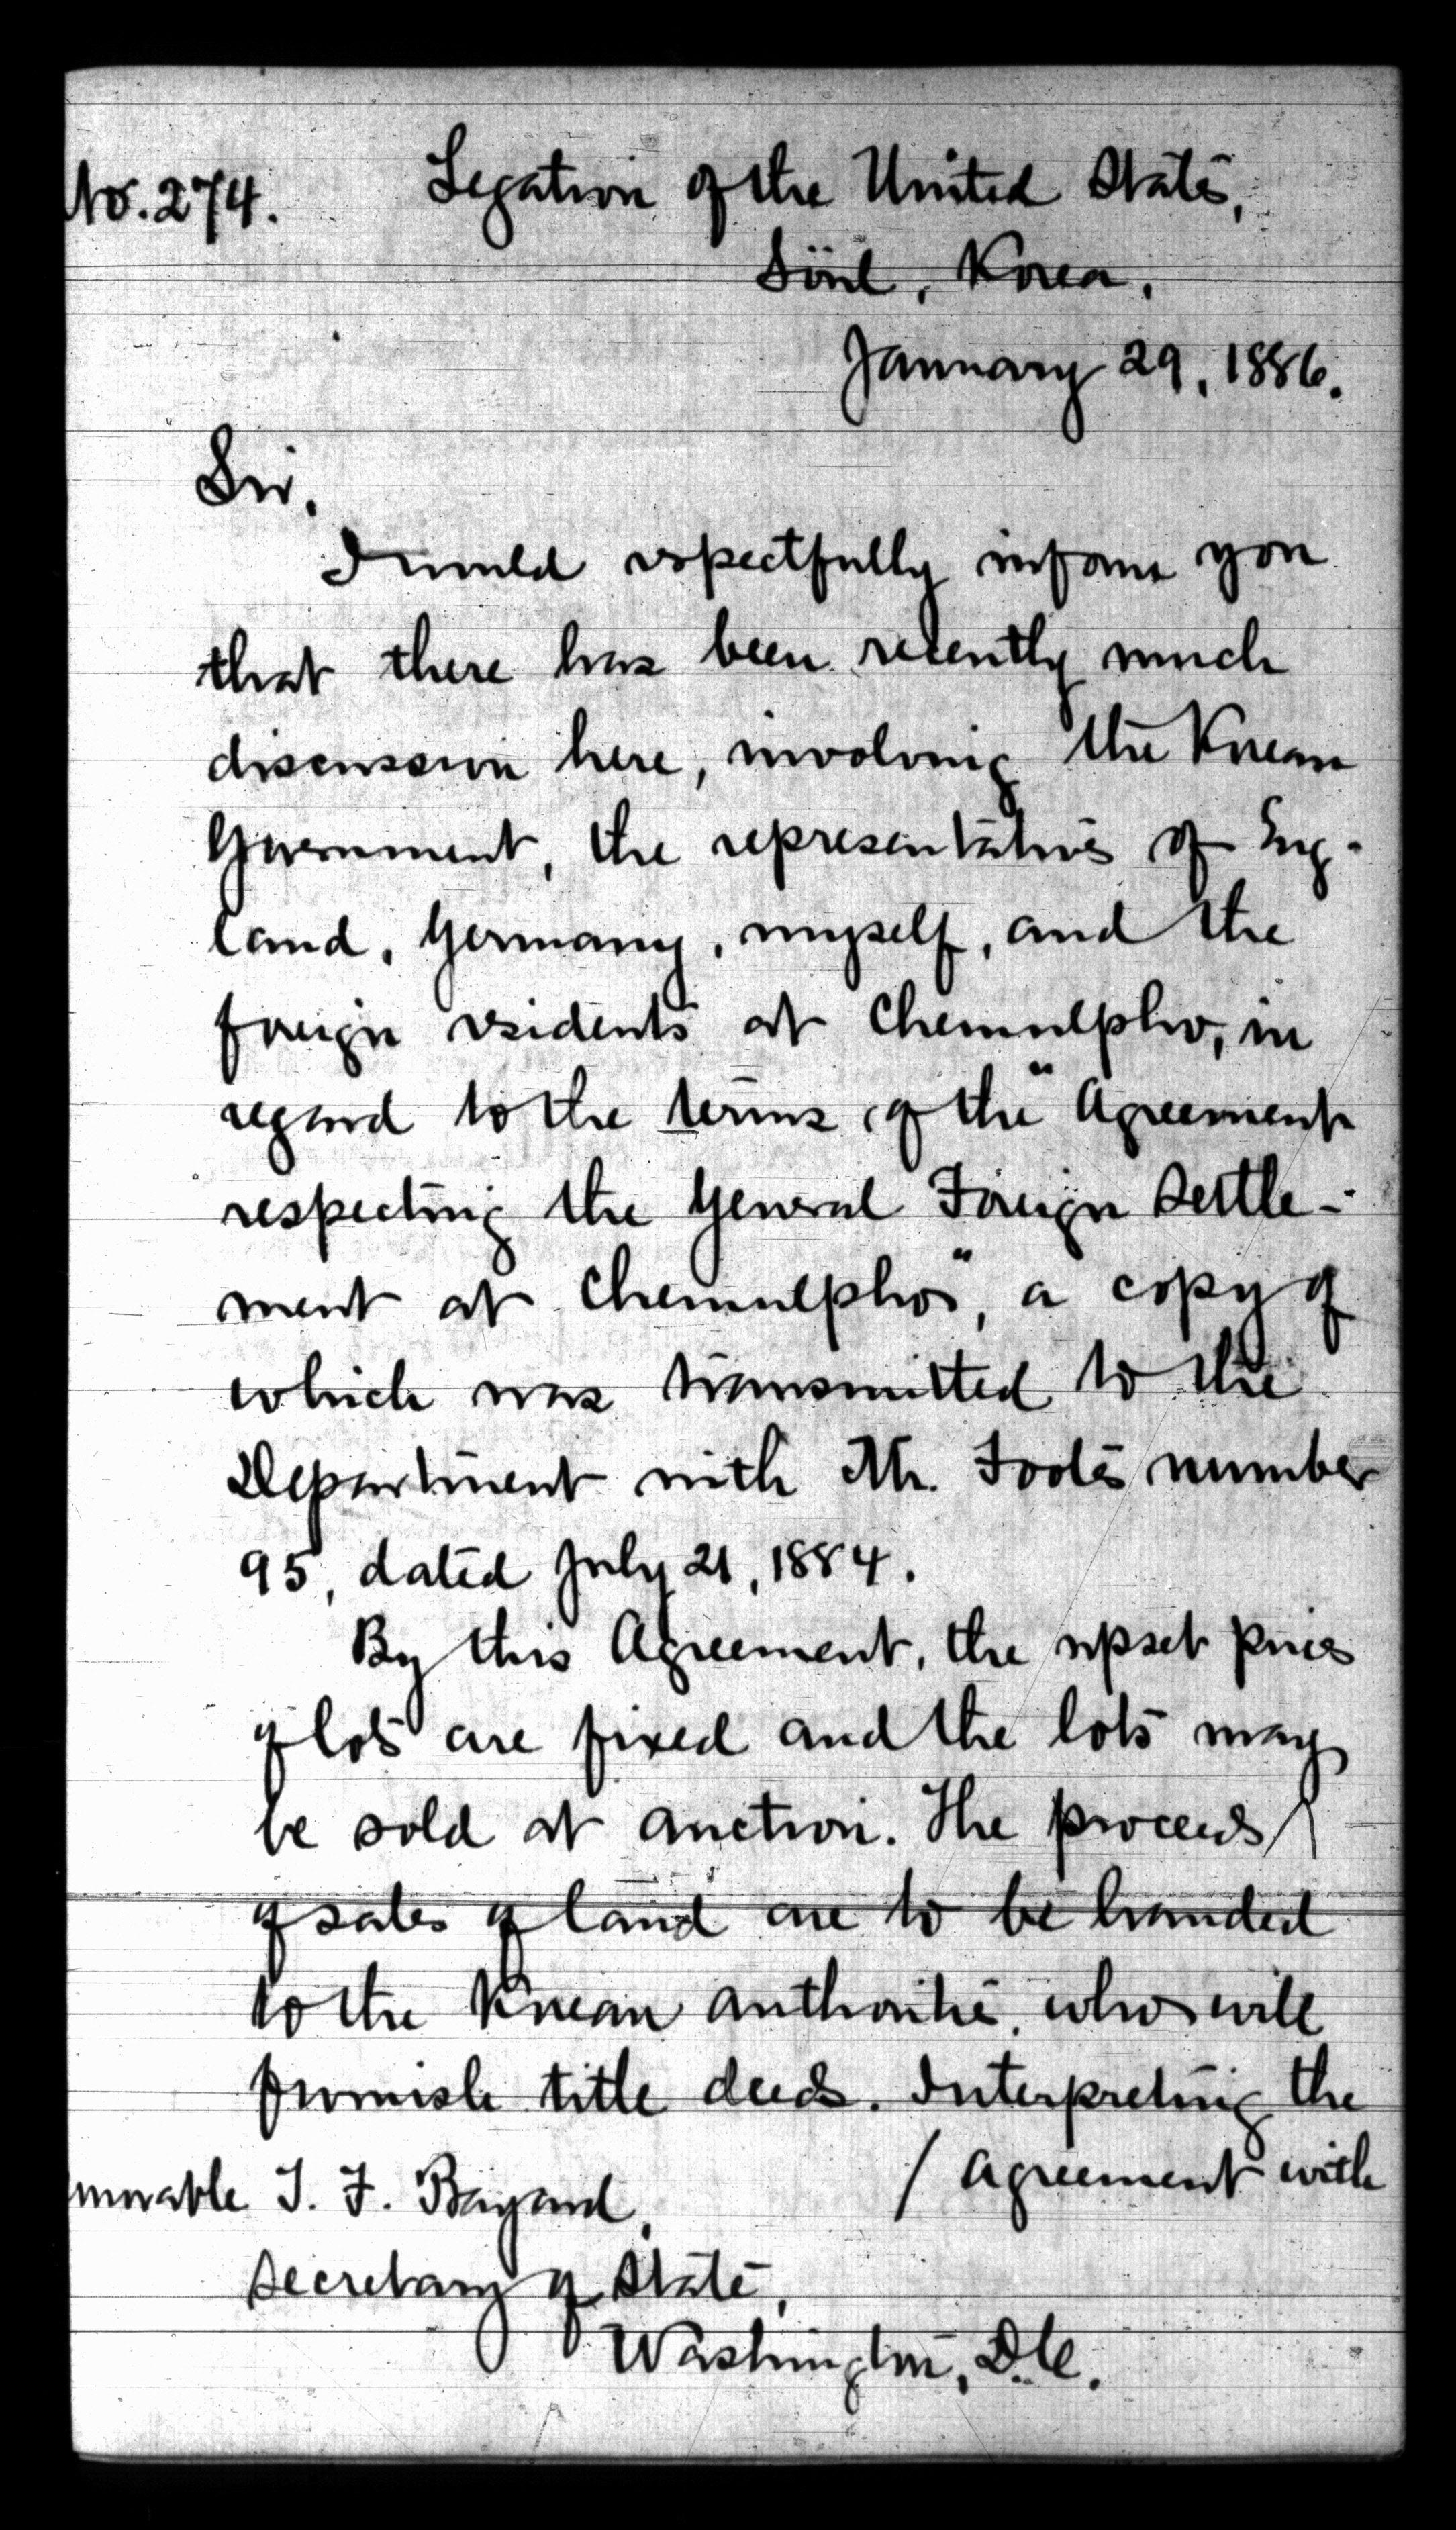 No. 274. Legation of the United States,
Söul, Korea,
January 29, 1886.
Sir,
I would respectfully inform you
that there has been recently much
discussion here, involving the Korean
Government, the representatives of Eng-
land, Germany, myself, and the
foreign residents at Chemulpho, in
regard to the terms of the "Agreement
respecting the General Foreign Settle-
ment at Chemulpho", a copy of
which was transmitted to the
Department with Mr. Foote's number
95, dated July 21, 1884.
By this Agreement, the upset prices
of lots are fixed and the lots may
be sold at auction. The proceeds
of sales of land are to be handed
to the Korean authorities, who will
furnish title deeds. Interpreting the
/ Agreement with
norable T. F. Bayard,
Secretary of State,
Washington, D.C.